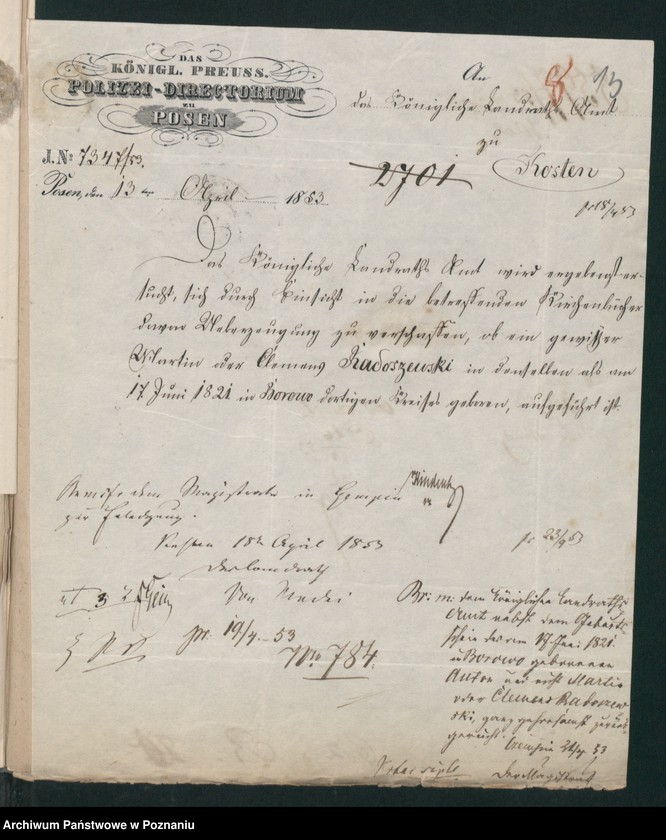 DAS
KÖNIGL. PREUSS.
POLIZEI-DIRECTORIUM
zu
POSEN
J. No 7347/53.
Posen, den 13 ten April 1853
An
das Königliche Landraths Amt
zu
Kosten
8
13
2701
pr 18/4 53
Das Königliche Landraths Amt wird ergebenst er-
sucht, sich durch Einsicht in die betreffenden Kirchenbücher
davon Ueberzeugung zu verschaffen, ob ein gewisser
Martin oder Clemens Radoszewski in denselben als am
17 Juni 1821 in Borowo dortigen Kreises geboren, aufgeführt ist.
dem Magistrate in Czempin
zur Erledigung.
Kosten 18 April 1853
Der Landrath
pr. 19/4 53
No 784.
pr 23/4 53
Br. m. dem Königlichen Landraths
Amt nebst dem Geburts-
schein des am 17 Juni 1821
in Borowo geborenen
Anton und nicht Martin
oder Clemens Radoszew-
ski, ganz gehorsamst zurück-
gereicht.
Czempin 53
Der Magistrat
Archiwum Państwowe w Poznaniu